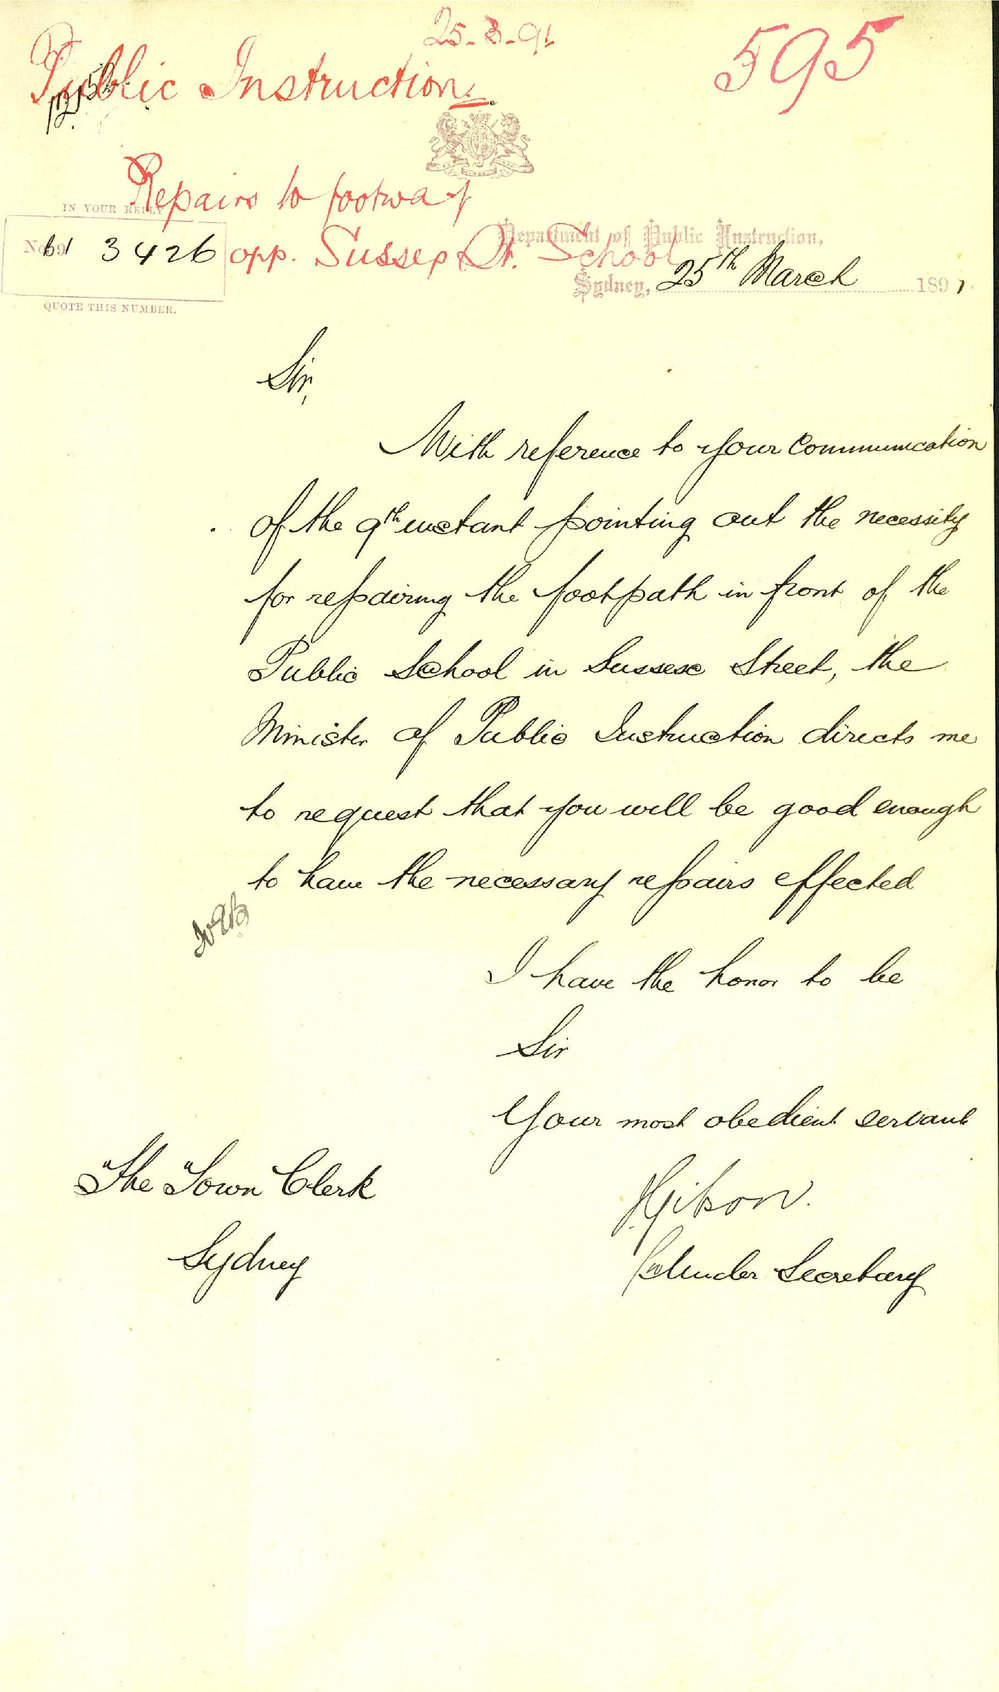 25-3-91
595
Public Instruction.
Repairs to footway
IN YOUR REPLY
No. 91 3426
opp. Sussex St. School
QUOTE THIS NUMBER.
Department of Public Instruction,
Sydney, 25th March 1891.
Sir,
With reference to your Communication
of the 9th instant pointing out the necessity
for repairing the footpath in front of the
Public School in Sussex Street, the
Minister of Public Instruction directs me
to request that you will be good enough
to have the necessary repairs effected
I have the honor to be
Sir
Your most obedient servant
Under Secretary
The Town Clerk
Sydney